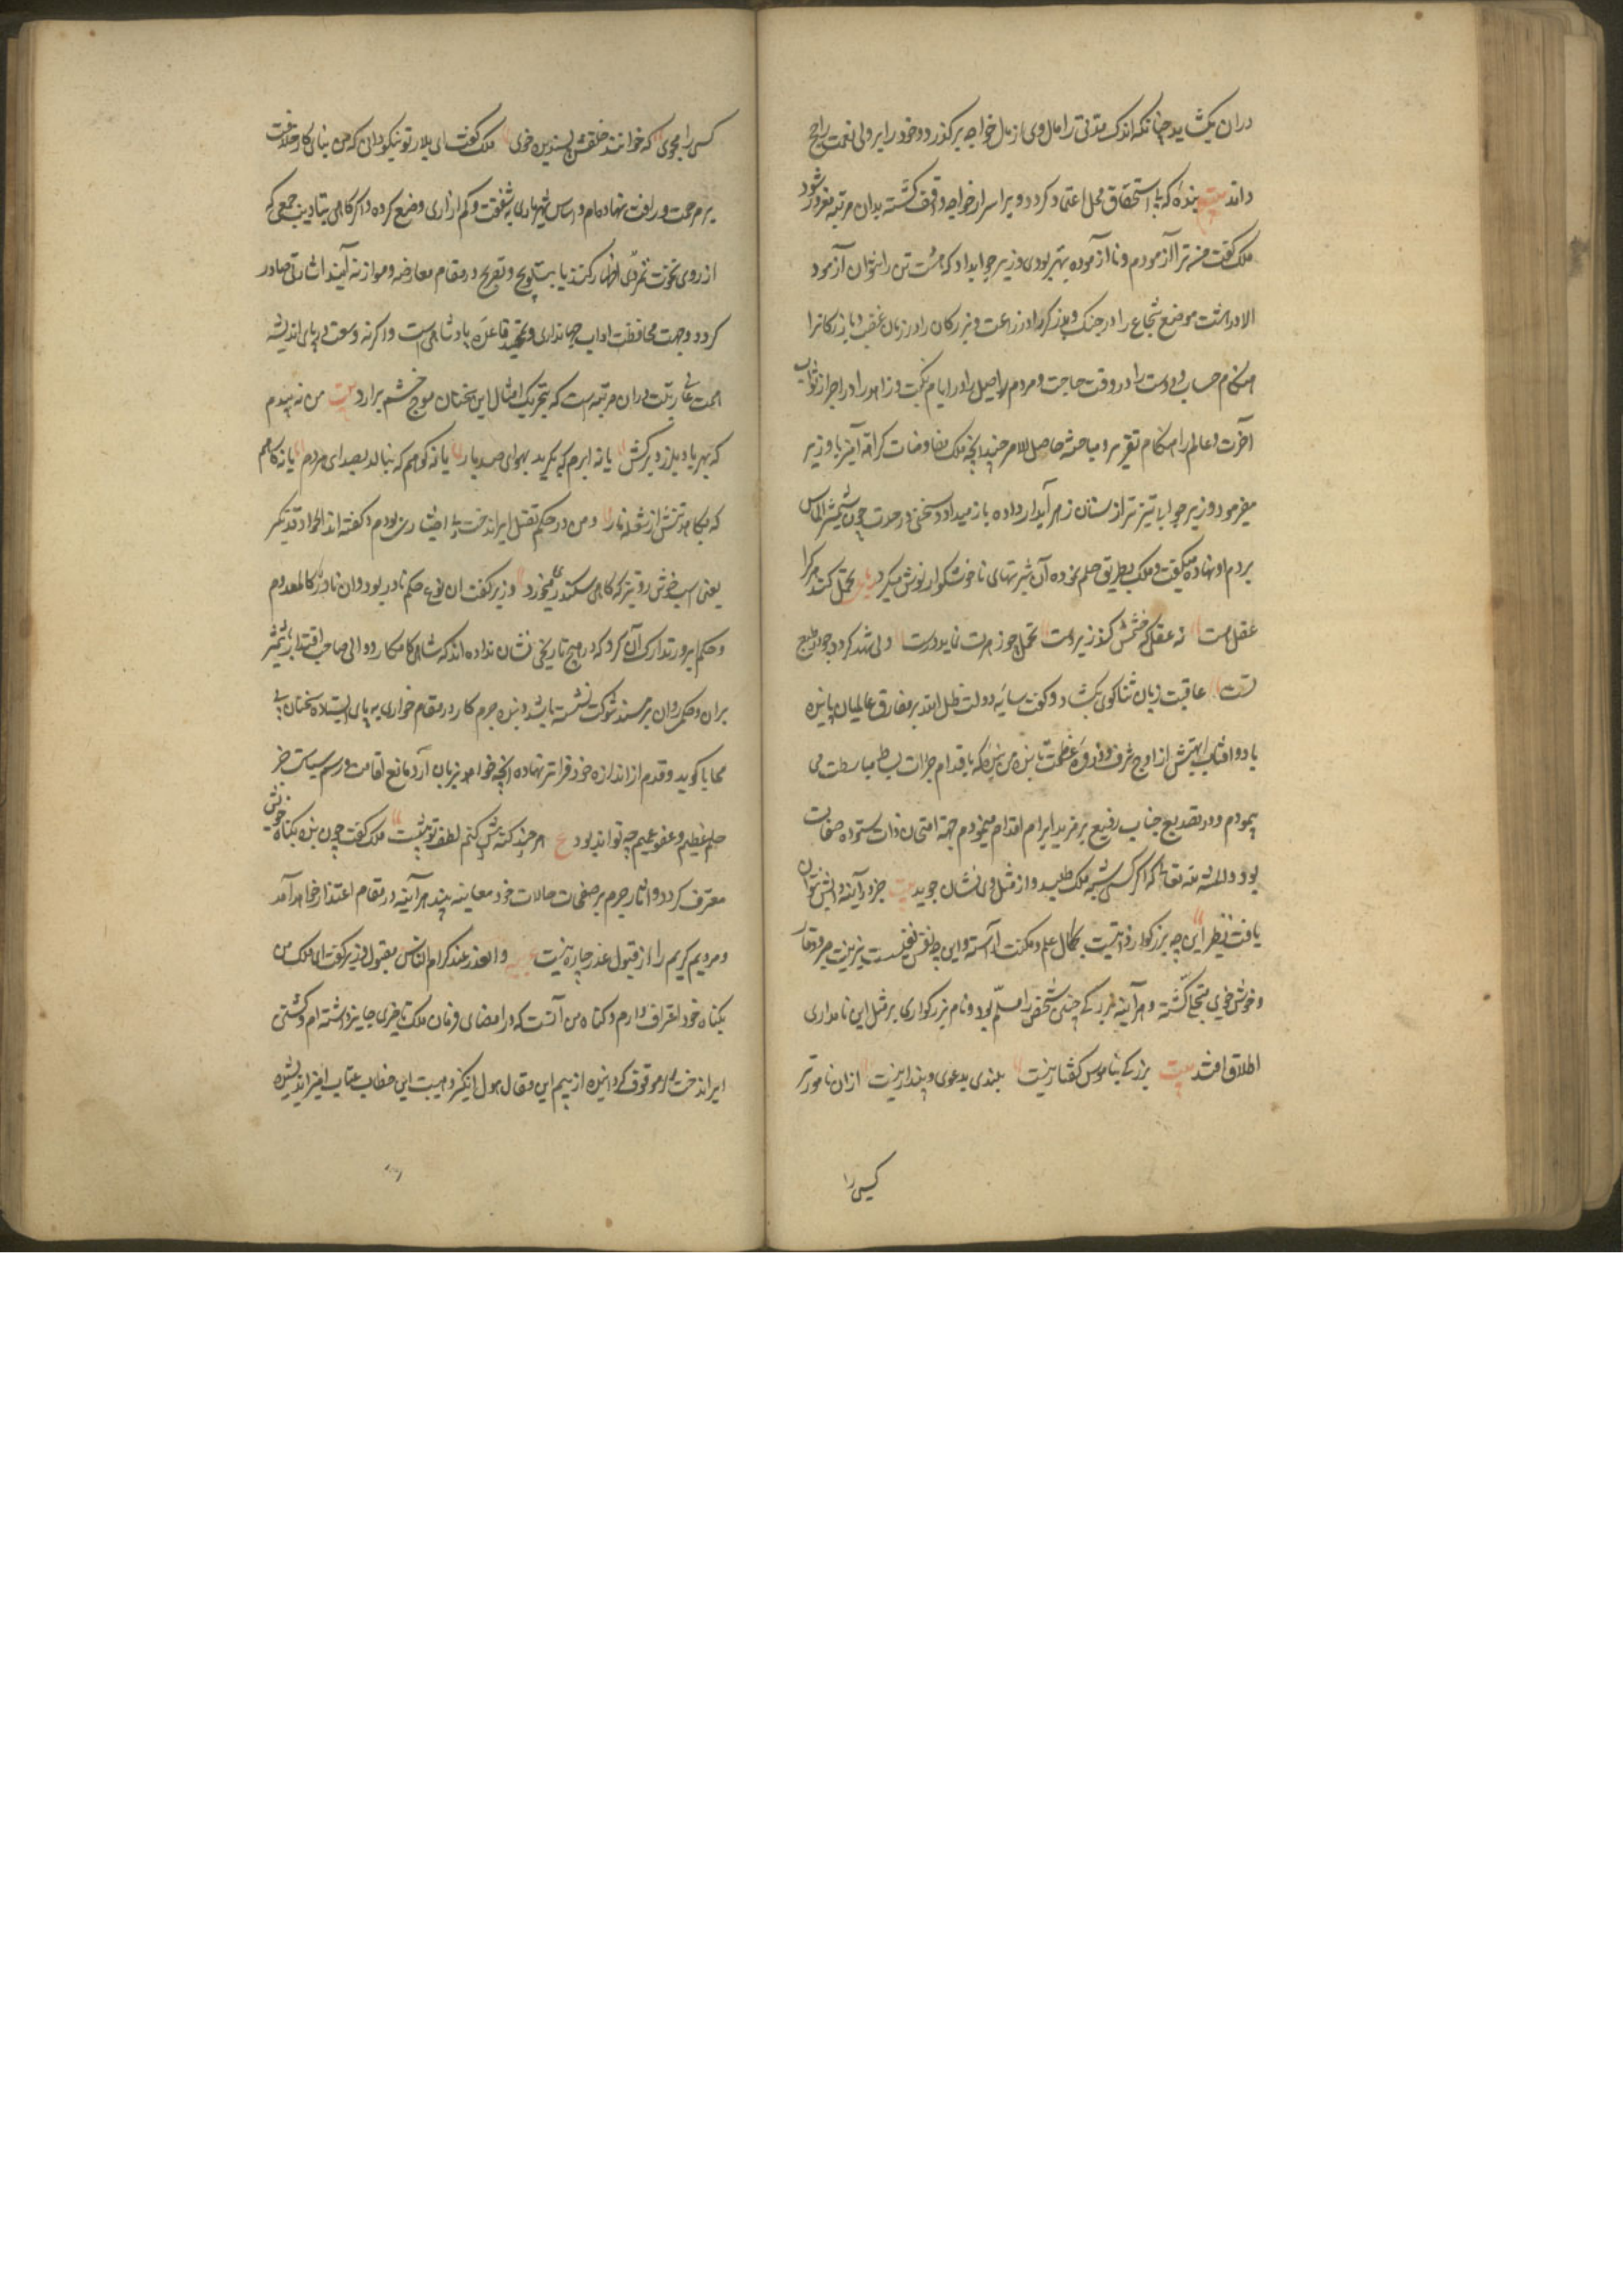 دران بکشاید چنانکه اندک مدتی را مال وی از مال خواجه برکذرد و خود را بر ولی نعمت راجح
داند بیت بنده که با استحقاق محل اعتماد کردد و بر اسرار خواجه واقف کشته بدان مرتبه مغرور شود
ملک کفت منه ترا آزمودم و نا آزموده بهتر بودی وزیر جواب داد که هشت تن را نتوان آزمود
الا در هشت موضع شجاع را در جنک و برزکر را در زراعت و بزرکان را در زمان غضب و بازرکانرا
هنکام حساب و دوست را در وقت حاجت و مردم اصیل را در ایام نکبت و زاهد را در احراز ثواب
آخرت و عالم را هنکام تقریر و مباحثه حاصل الامر چندانچه ملک مفاوضات کراهة آمیز با وزیر
میفرمود وزیر جوابها تیزتر از سنان زهر آبدار داده باز میداد و سخنی در حدت چون شمشیر الماس
بردم او نهاده میکفت و ملک بطریق حلم نموده آن شربتهای ناخوشکوار نوش میکرد تحمل کند هر کرا
عقل هست نه عقلی که خشمش کند زیر دست تحمل چو زهرت نماید درست ولی شهد کردد چو در طبع
رست عاقبت زبان ثنا کوی بکشاد و کفت سایه دولت ظل الله بر مفارق عالمیان پاینده
باد و آفتاب ابهتش از اوج شرف و ذروه عظمت تابنده من بنده که باقدام جرأت بساط مباسطت می
پیمودم و در تصدیع جناب رفیع بر مزید ابرام اقدام مینمودم جهة امتحان ذات ستوده صفات
بود و المنة لله تعالی که اکر کسی شبیه ملک طلبد و از مثل وی نشان جوید بیت جز در آینه و آبش نتوان
یافت نظیر این چه بزرکوار ذاتیست بکمال علم و مکنت آراسته و این چه نفس نفیسست بزینت صبر و وقار
و خوش خویی متجلی کشته و هر آینه بزرکی چنین شخصی را مسلم بود و نام بزرکواری بر مثل این نامداری
اطلاق افتد بیت بزرکی بناموس کفتار نیست بلندی بدعوی و پندار نیست ازان نامورتر
کسی را
کسی را مجوی که خوانند خلقش پسندیده خوی ملک کفت ای بلار تو نیکو دانی که من بنای کار خلافت
بر مرحمت و رافت نهاده ام و اساس شهریاری به شفقت و کم آزاری وضع کرده و اکر کاهی بتادیب جمعی که
از روی نخوت تمردی اظهار کنند یا بتلویح و تصریح در مقام معارضه و موازنه آیند اشارتی صادر
کردد و جهت محافظت اداب جهانداری و تمهید قاعده پادشاهیست و اکرنه وسعت دریای اندیشه
همت عالی رتبت دران مرتبه است که بتحریک امثال این سخنان موج خشم برارد بیت من نه بیدم
که بهر باد بلرزد برکش یا نه ابرم که بکرید بهوای صد بار یا نه کوهم که بنالد بصدای مردم یا نه کاهم
که بکاهد تنش از شعله نار و من در حکم بقتل ایراندخت بی اختیار بودم و کفته اند الجواد قد یعثر
یعنی اسب خوش رو تیز که کاهی سکندری میخورد وزیر کفت ان نوع حکم نادر بود و ان نادر کالمعدوم
و حکم برور تدارک آن کرد که در هیچ تاریخی نشان نداده اند که شاهی کامکار و والی صاحب اقتدار با شمشیر
بران و حکم روان بر مسند شوکت نشسته باشد و بنده جرم کار در مقام خواری بر پای ایستاده سخنان بی
محابا کوید و قدم از اندازه خود فراتر نهاده انچه خواهد بزبان آرد مانع اقامت و رسم سیاست جز
حلم عظیم و عفو عمیم چه تواند بود ع هر چند کنه بیش کنم لطف تو بیشست ملک کفت چون بنده بکناه خویش
معترف کردد و اثار جرم بر صفحات حالات خود معاینه بیند هر آینه در مقام اعتذار خواهد آمد
و مردم کریم را از قبول عذر چاره نیست عربیه و العذر عند کرام الناس مقبول وزیر کفت ای ملک من
بکناه خود اعتراف دارم و کناه من آنست که در امضای فرمان ملک تاخیری جایز داشته ام و کشتن
ایراندخت را موقوف کردانیده از بیم این مقال هول انکیز و هیبت این خطاب عتاب امیز اندیشیده